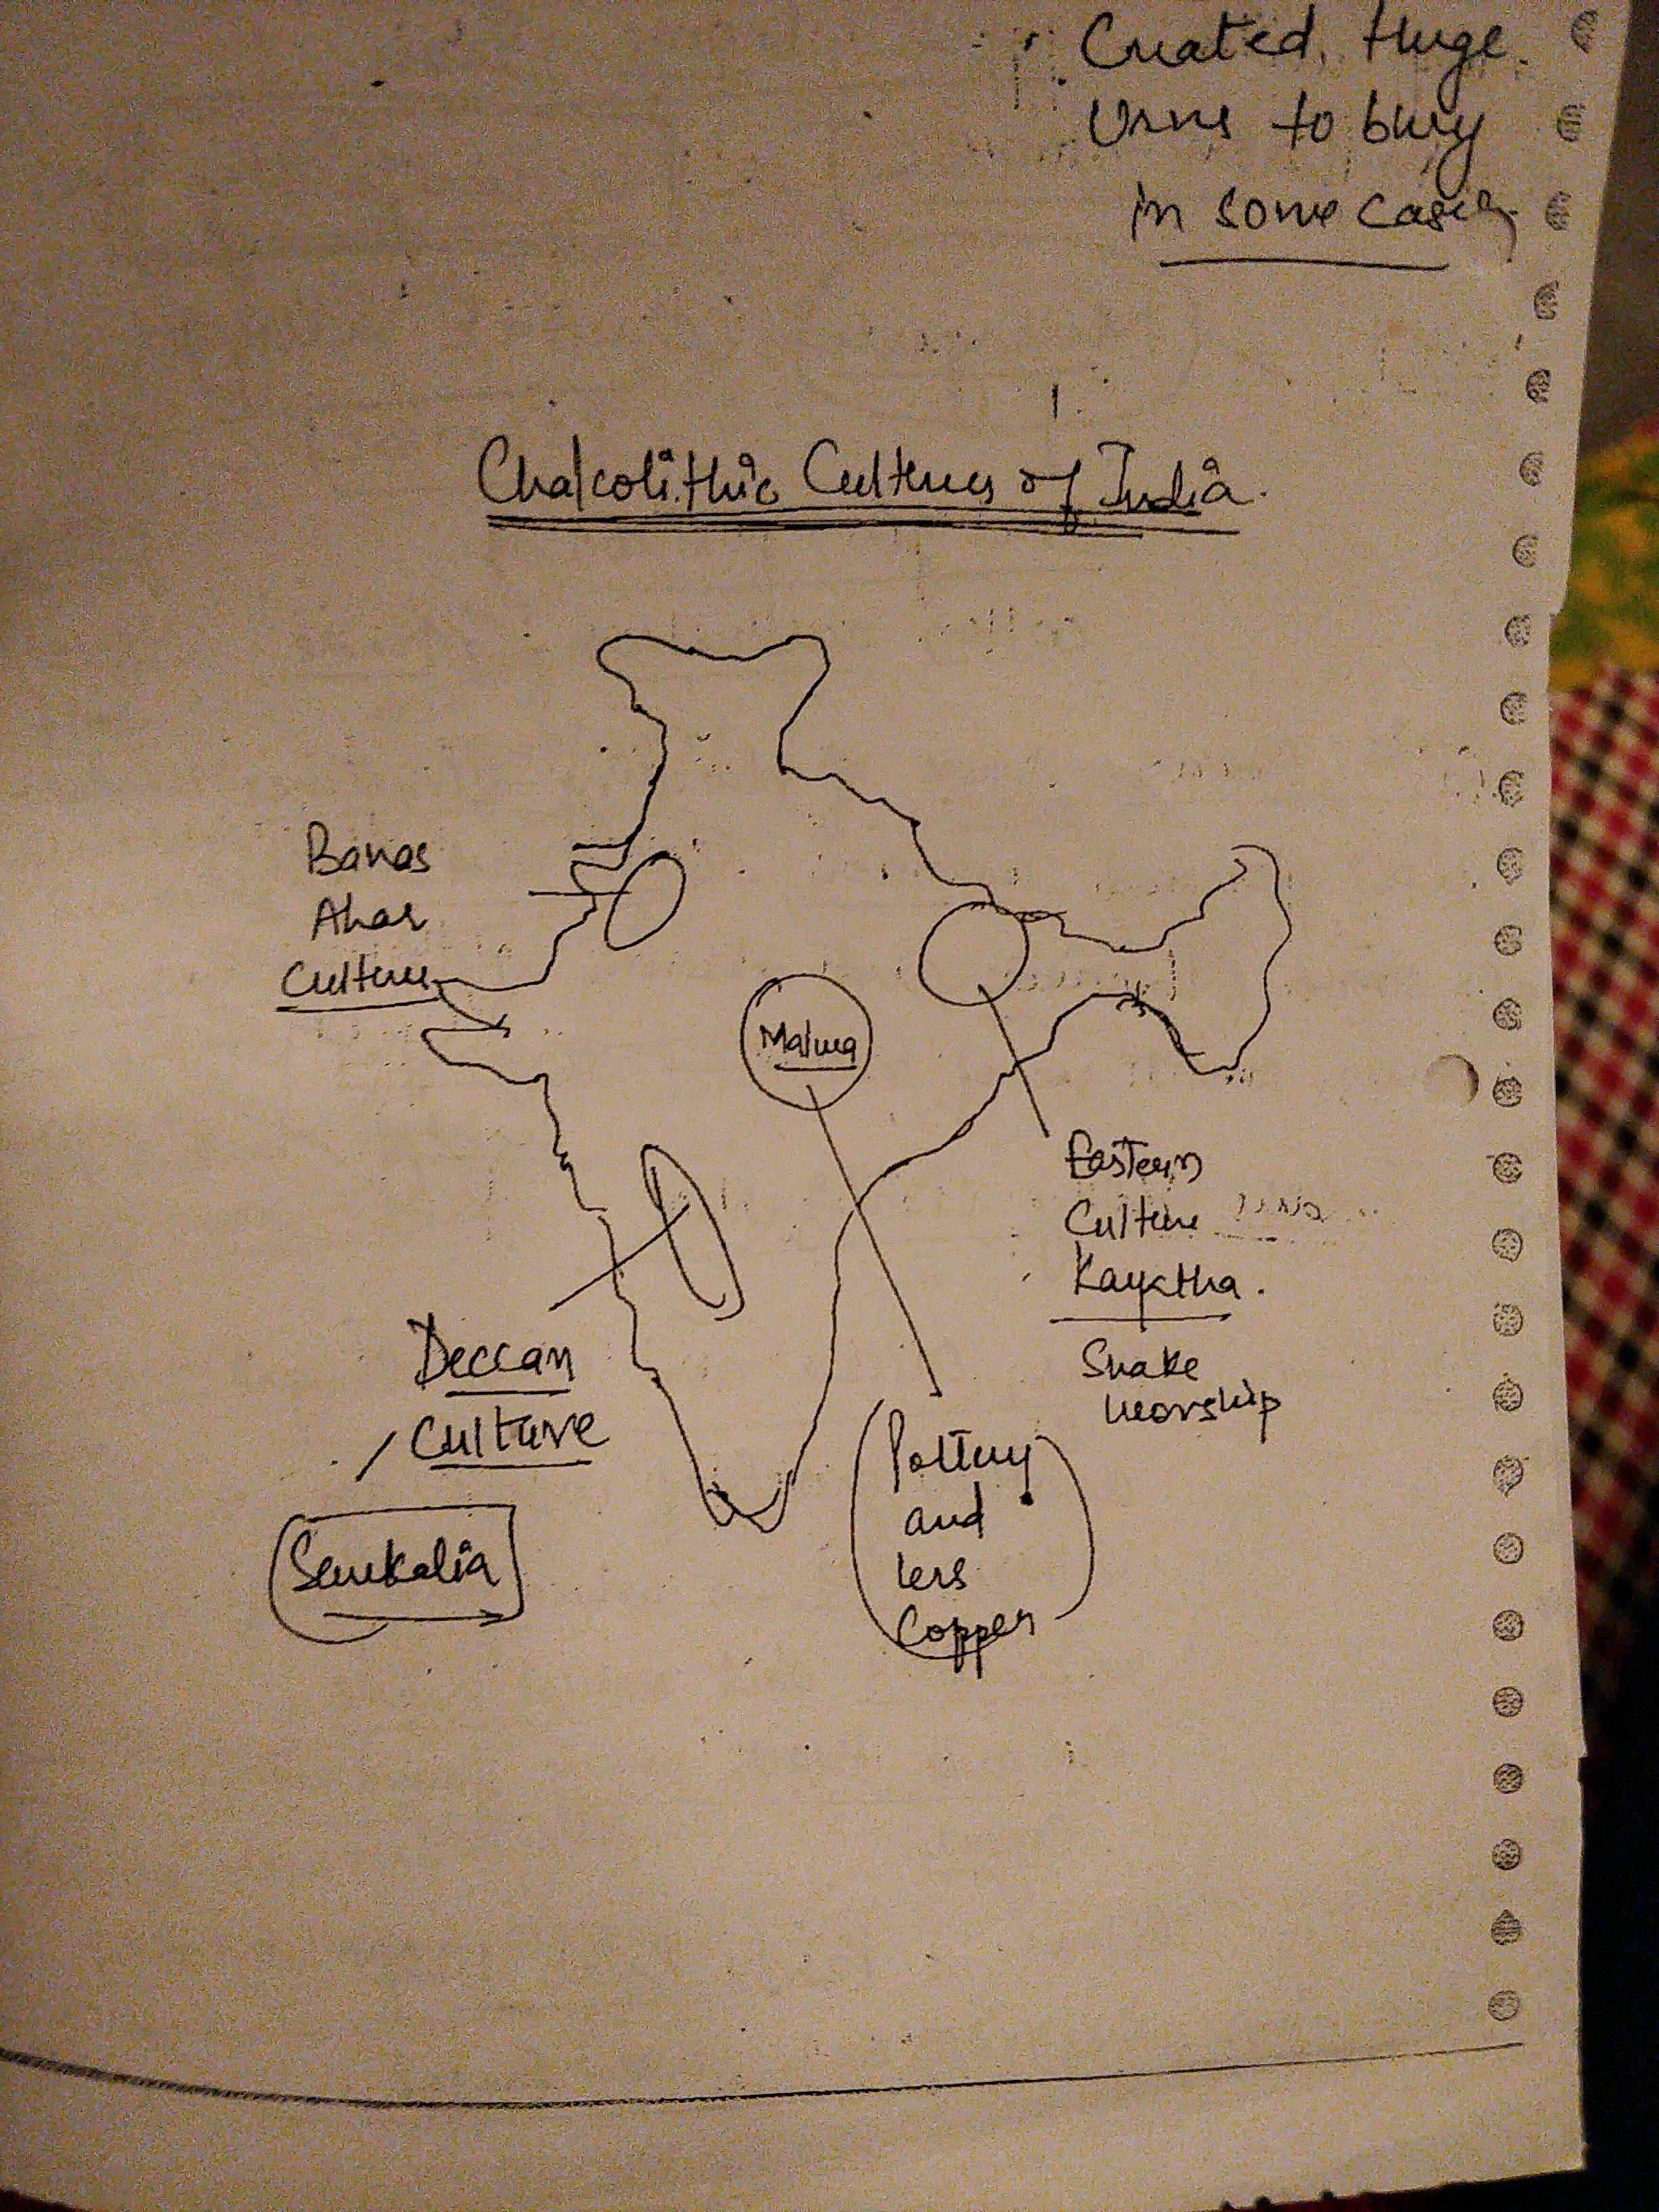 Created Huge
Urns to bury
in some cases
Chalcolithic Cultures of India.
Banas
Ahar
Culture
Malwa
Eastern
Culture
Kayktha.
Snake
worship
Deccan
Culture
Pottery
and
less
Copper